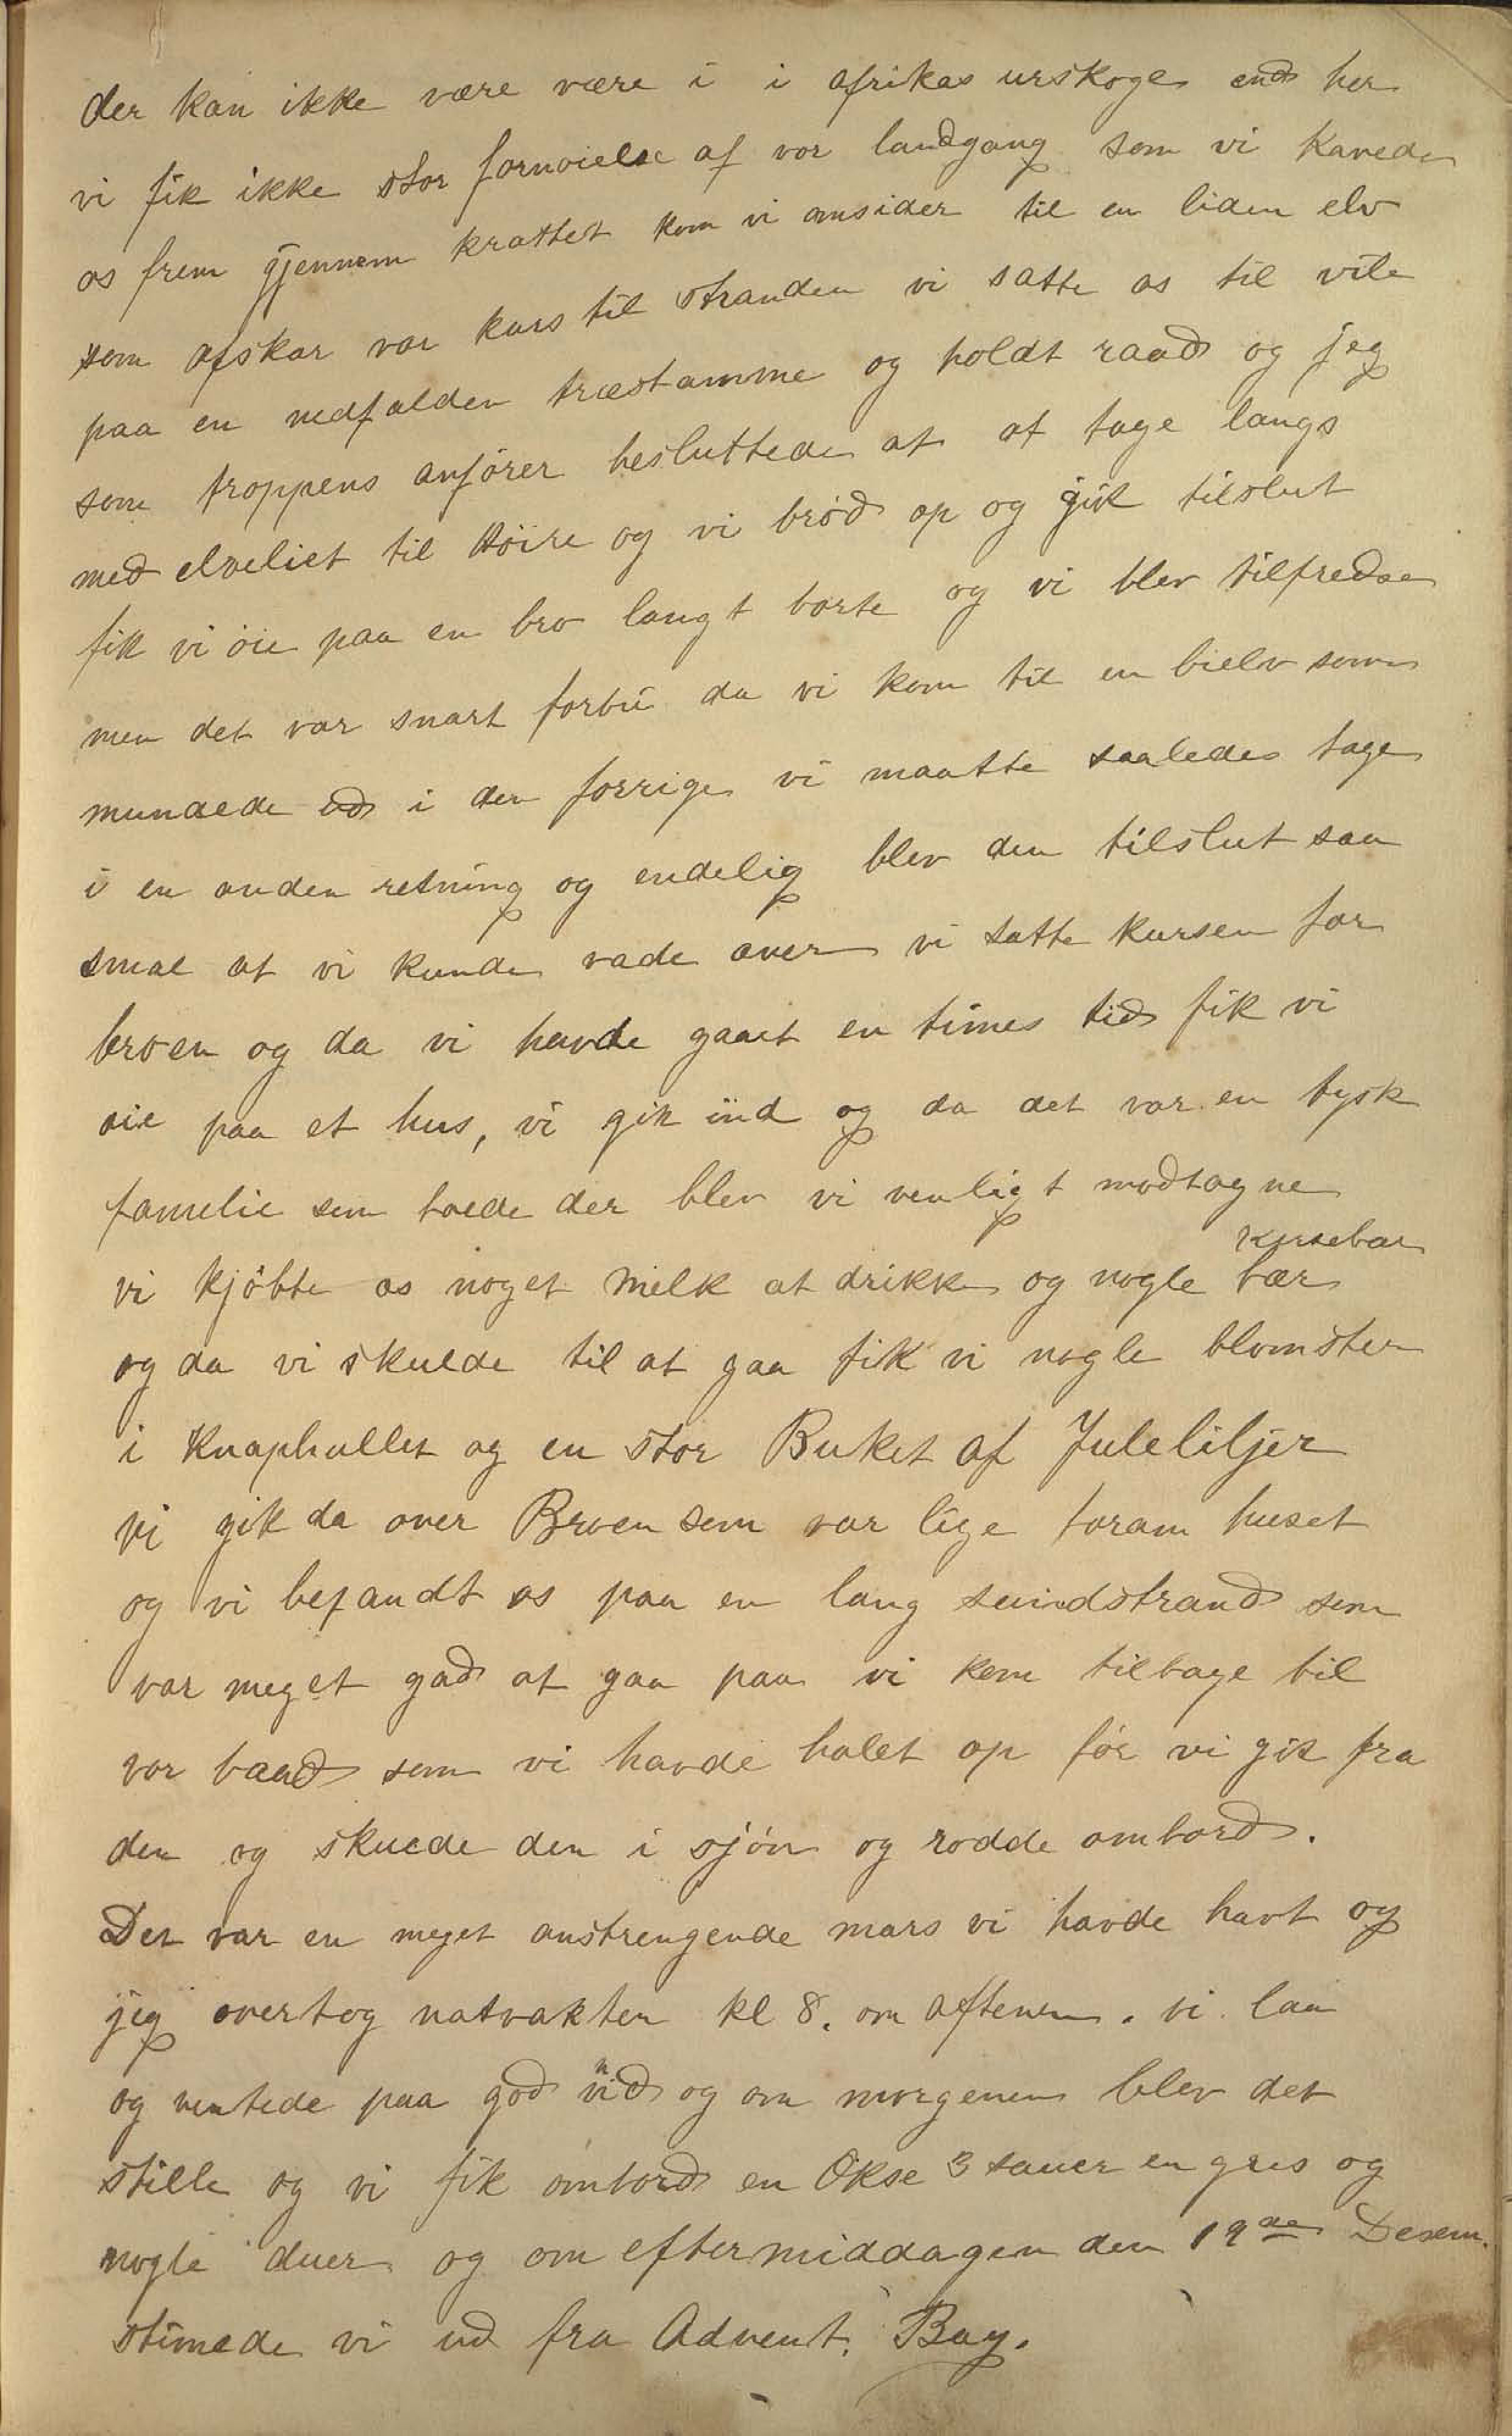 der kan ikke være være i i afrikas urskoge end her
vi fik ikke stor fornoielse af vor landgang som vi kavede
os frem gjennem krattet kom vi omsider til en liden elv
som afskar vor kurs til stranden vi satte os til vile
paa en nedfalden træstamme og holdt raad og jeg
som troppens anförer besluttede at at tage langs
med elveliet til Höire og vi bröd op og gik tilslut
fik vi öie paa en bro langt borte og vi blev tilfredse
men det var snart forbi da vi kom til en bielv som
mundede ud i den forrige vi maatte saaledes tage
i en anden retning og endelig blev den tilslut saa
smal at vi kunde vade over vi satte kursen for
broen og da vi havde gaaet en times tid fik vi
oie paa et hus, vi gik ind og da det var en tysk
famelie som boede der blev vi venligt modtagne
kirsebær
vi kjöbte os noget melk at drikke og nogle bær
og da vi skulde til at gaa fik vi nogle blomster
i Knaphullet og en stor Buket af Juleliljer
vi gik da over Broen som var lige foram huset
og vi befandt os paa en lang sandstrand som
var meget god at gaa paa vi kom tilbage til
vor baad som vi havde halet op för vi gik fra
den og skuede den i sjön og rodde ombord.
Det var en meget anstrengende mars vi havde havt og
jeg overtog natvakten kl 8. om aftenen. vi laa
og ventede paa god vind og om morgenen blev det
stille og vi fik ombord en Okse 3 sauer en gris og
nogle duer og om eftermiddagen den 19de Desem.
stimede vi ud fra Advent. Bay.